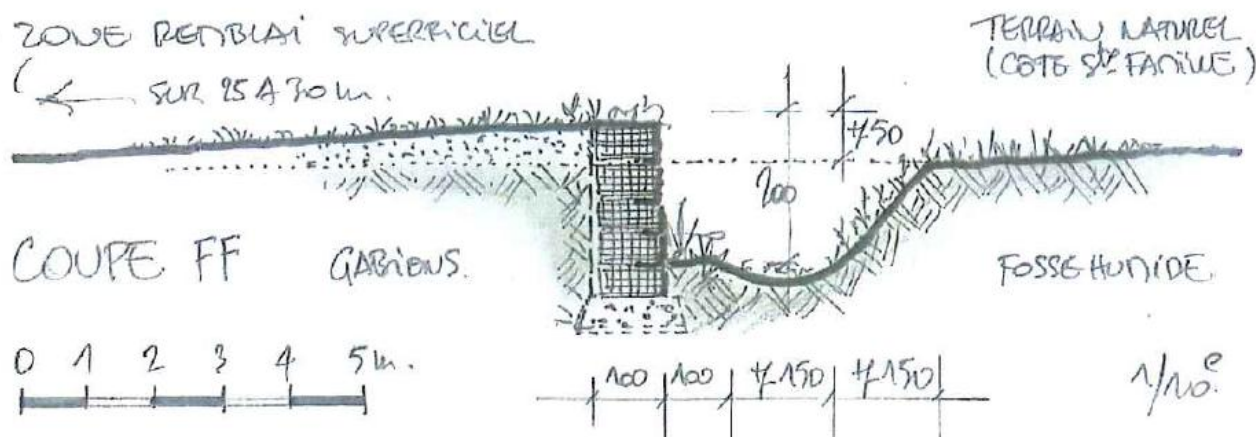 ZONE REMBLAI SUPERFICIEL
SUR 25 A 30 m.
TERRAIN NATUREL
(COTE Ste FAMILLE)
+/-50
200
COUPE FF
GABIONS.
FOSSE HUMIDE
0 1 2 3 4 5 m.
100 100 +/-150 +/-150
1/10.e